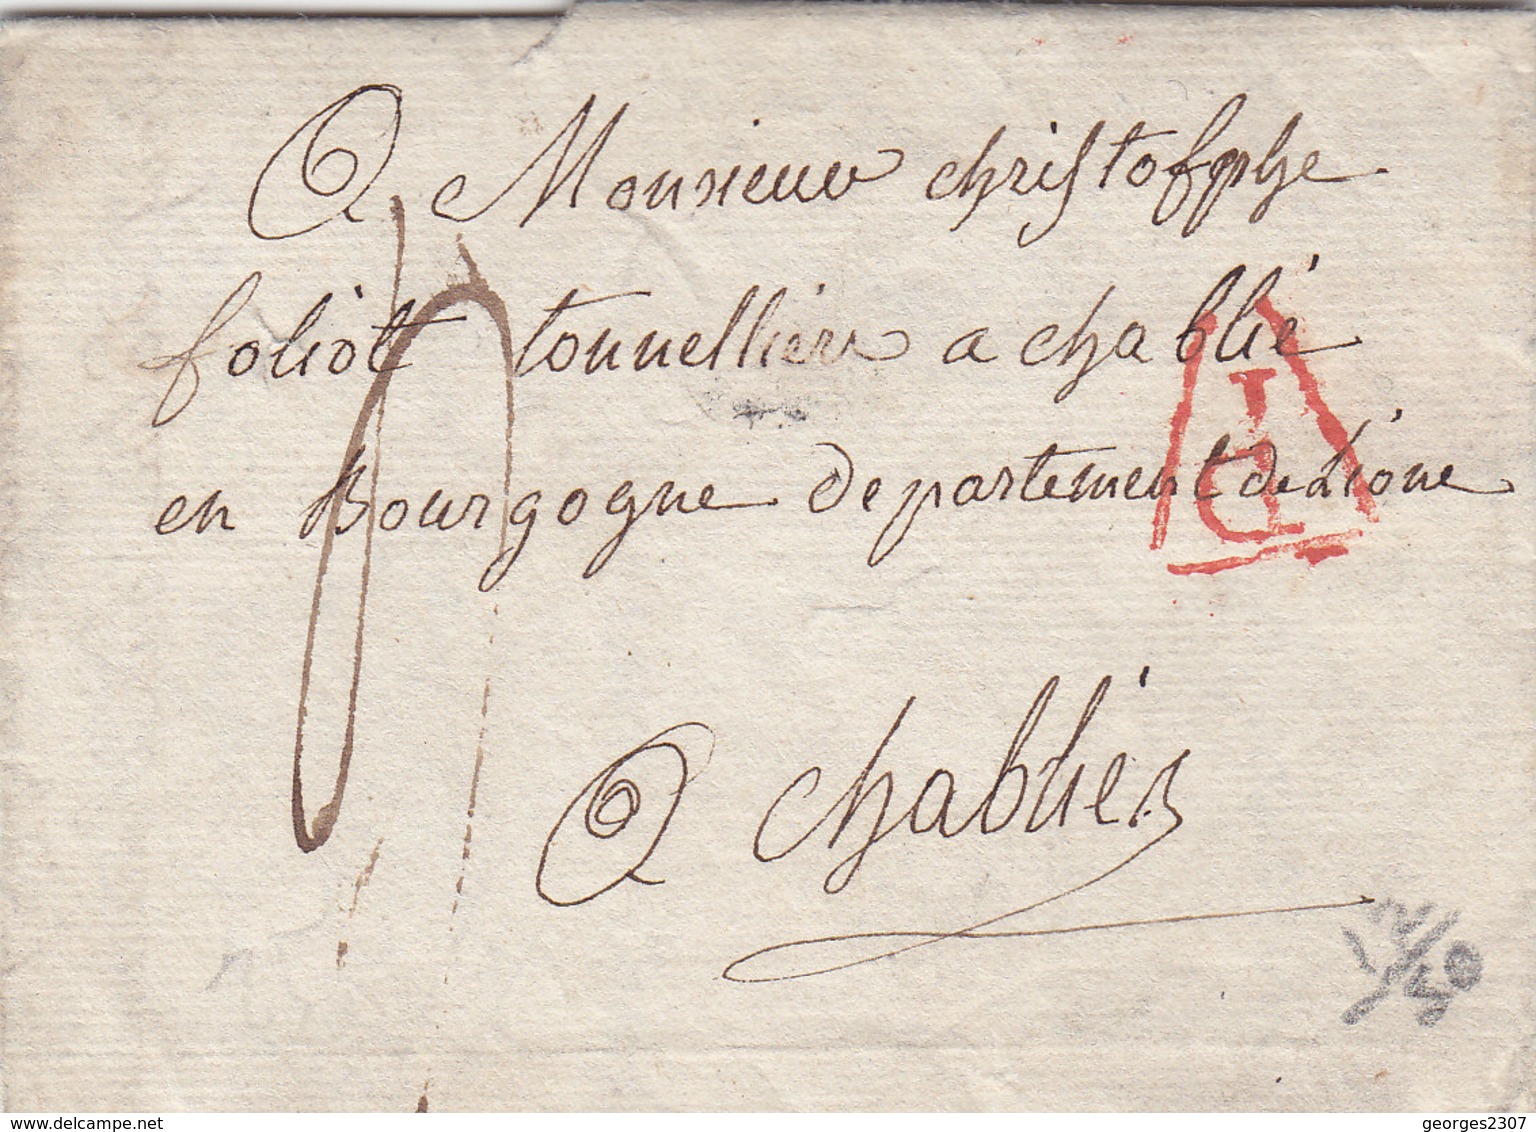 A Monsieur christofphe
foliot tonnellier a chablié
en Bourgogne departement de Lione
A chabliés
D
georges2307